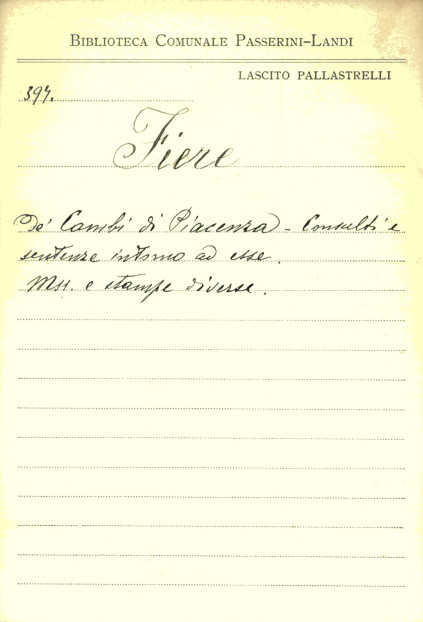 BIBLIOTECA COMUNALE PASSERINI-LANDI
LASCITO PALLASTRELLI
394.
Fiere
De' Cambi di Piacenza - Consulti e
sentenze intorno ad esse.
Mss. e stampe diverse.